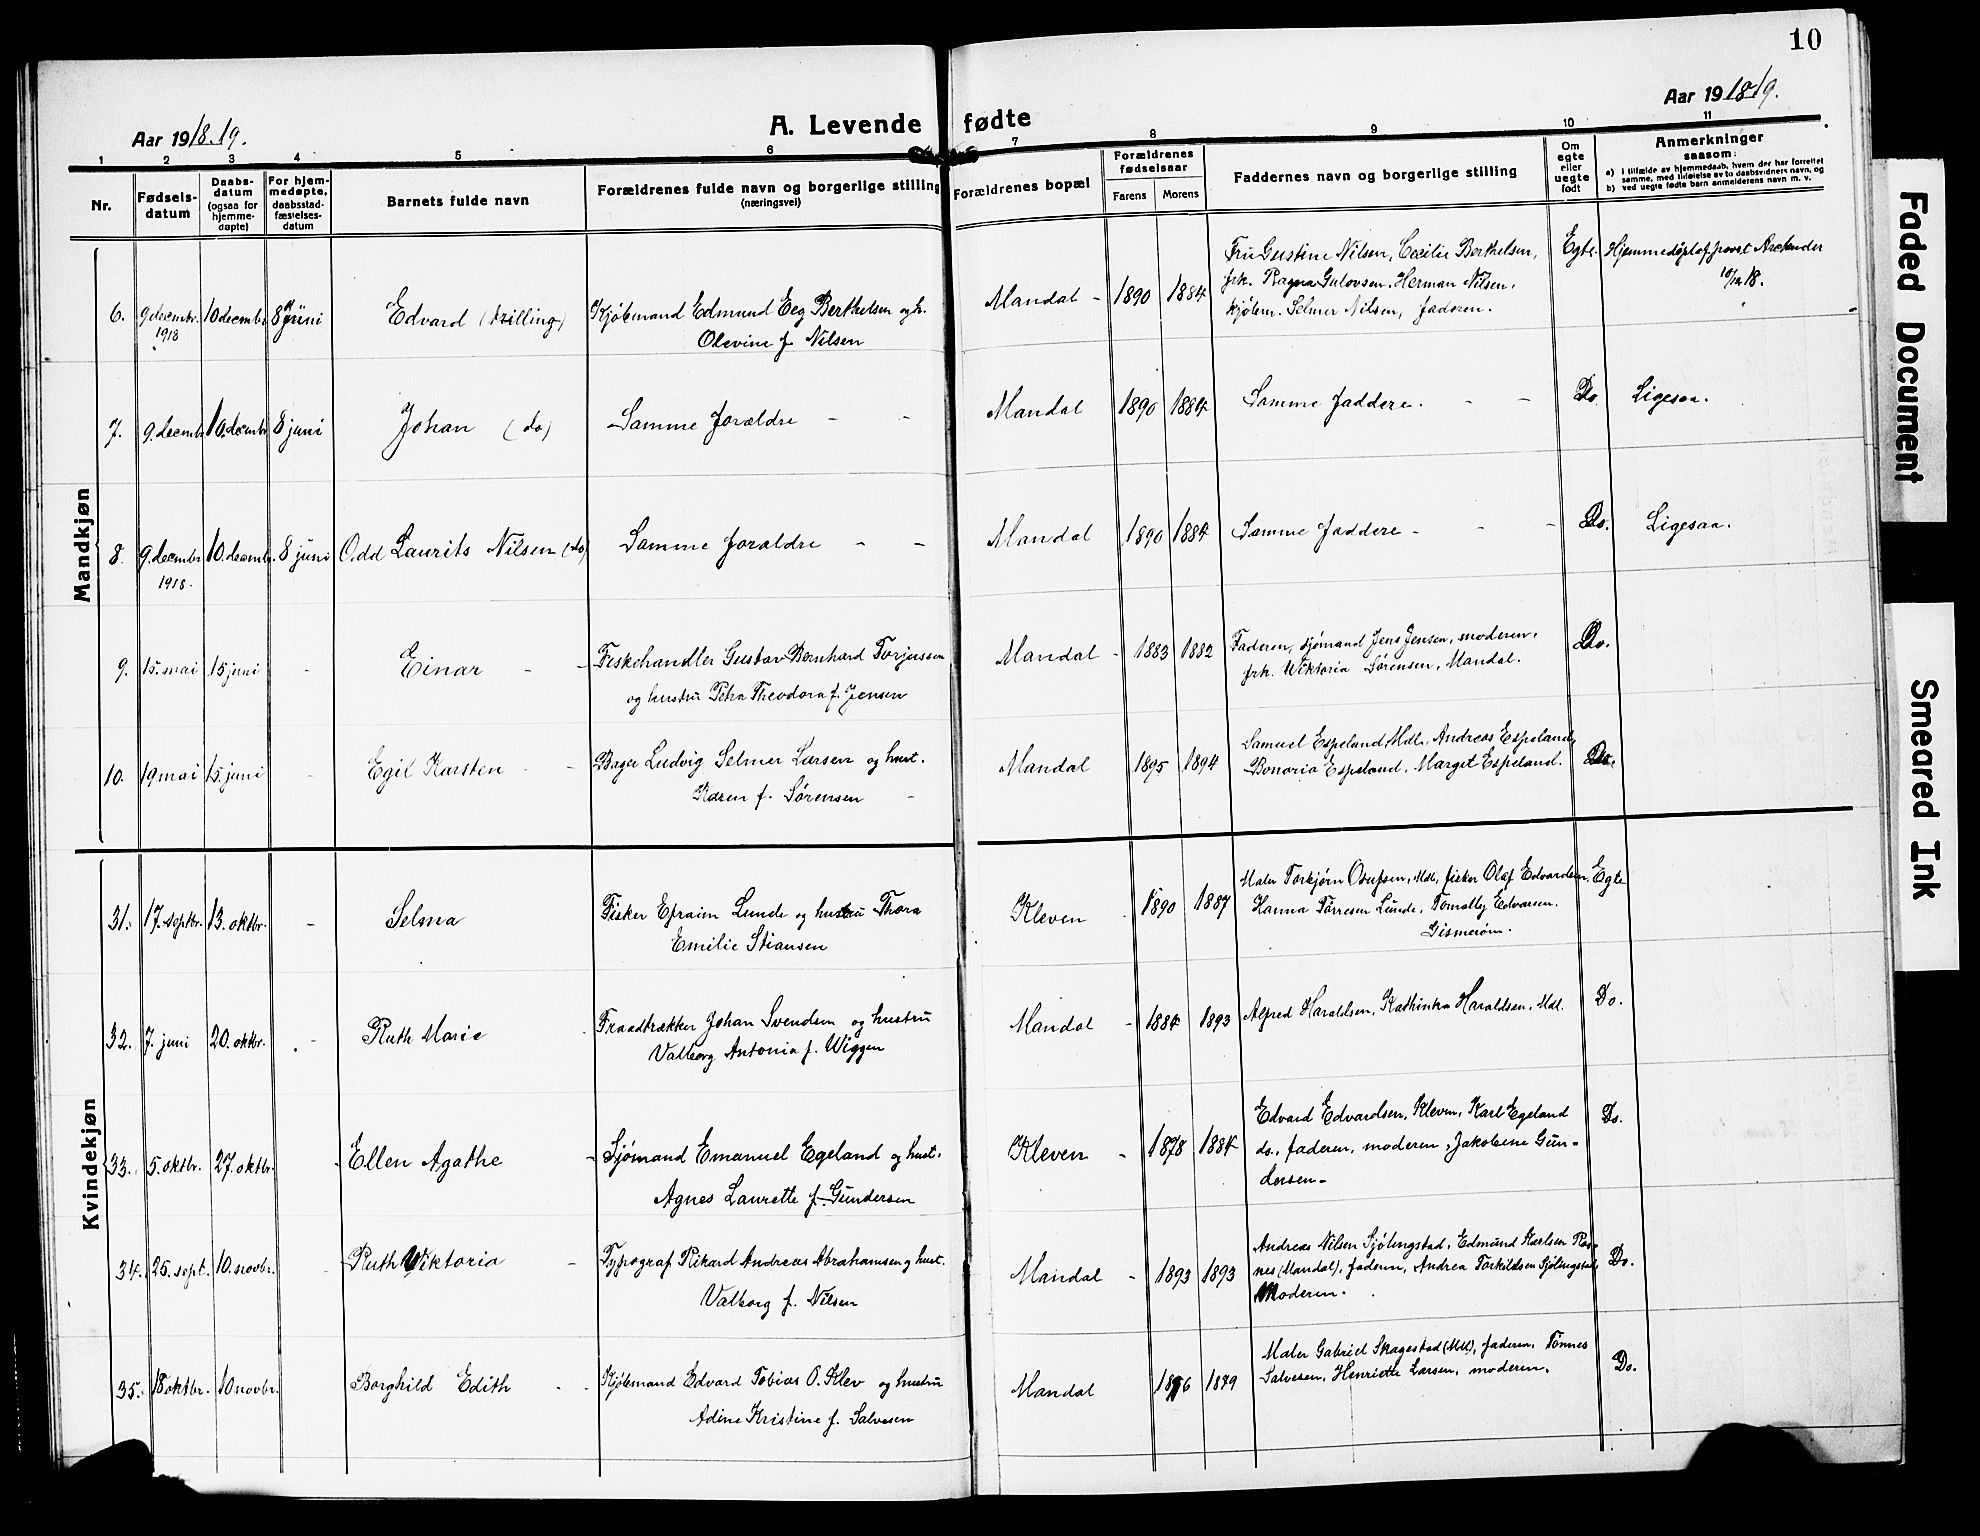 10
Aar 1918.19.
A. Levende fødte
Aar 1918/19.
1 2 3 4 5 6 7 8 9 10 11
Nr.
Fødsels-
datum
Daabs-
datum
(ogsaa for
hjemme-
døpte)
For hjem-
medøpte,
daabsstad-
fæstelses-
datum
Barnets fulde navn
Forældrenes fulde navn og borgerlige stilling
(næringsvei)
Forældrenes bopæl
Forældrenes
fødselsaar
Farens Morens
Faddernes navn og borgerlige stilling
Om
egte
eller
uegte
født
Anmerkninger
saasom:
a) i tilfælde av hjemmedaab, hvem der har forrettet
samme, med tilføielse av to daabsvidners navn, og
b) ved uegte fødte barn anmelderens navn m. v.
Mandkjøn
6. 9 decembr. 1918 10 decembr. 8 juni Edvard (trilling)
Kjøbmand Edmund Eeg Berthelsen og h.
Olevine f. Nilsen
Mandal - 1890 1884
Fru Gustine Nilsen, Cecilie Berthelsen,
frk. Ragna Gulovsen, Herman Nilsen,
kjøbm. Selmer Nilsen, faderen.
Egte. Hjemmedøpt af provst
10/12 18.
7. 9. decembr. 10. decembr. 8 juni Johan (do)
Samme forældre - -
Mandal 1890 1884 Samme faddere. - - Do. Ligesaa.
8. 9. decembr. 1918. 10. decembr. 8 juni Odd Laurits Nilsen (do)
Samme forældre - -
Mandal 1890 1884 Samme faddere - - - Do. Ligesaa.
9. 15. mai 15 juni - Einar - -
Fiskehandler Gustav Bernhard Torjussen
og hustru Petra Theodora f. Jensen
Mandal - 1883 1882
Faderen, sjømand Jens Jensen, moderen,
frk. Wiktoria Sørensen, Mandal.
Do.
10. 19 mai 15. juni - Egil Karsten - -
Bager Ludvig Selmer Larsen og hust.
Karen f. Sørensen -
Mandal 1895 1894
Samuel Espeland, Mdl. Andreas Espeland,
Bonaria Espeland, Margit Espeland.
Do.
Kvindekjøn
31. 17. septbr. 13. oktbr. - Selma
Fisker Efraim Lunde og hustru Thora
Emilie Stiansen
Kleven 1890 1887
Maler Torkjørn Osufsen, Mdl, fisker Olaf Edvardsen,
Hanna Tørresen Lunde, Edvarsen.
Gismerøen.
Egte
32. 7. juni 20. oktbr. - Ruth Marie
Traadtrækker Johan Svendsen og hustru
Valborg Antonia f. Wiggen
Mandal - 1884 1893
Alfred Haraldsen, Kathinka Haraldsen, Mdl.
Do.
33. 5. oktbr. 27. oktbr. - Ellen Agathe -
Sjømand Emanuel Egeland og hust.
Agnes Laurette f. Gundersen
Kleven - 1878 1884
Edvard Edvardsen, Kleven, Karl Egeland
ds., faderen, moderen, Jakobine Gun-
dersen-
Do.
34. 25. sept. 10. novbr. - Ruth Wiktoria -
Typograf Rikard Andreas Abrahamsen og hust.
Valborg f. Nilsen
Mandal - 1893 1893
Andreas Nilsen Sjølingstad, Edmund Karlsen Ros-
nes (Mandal), faderen, Andrea Torkildsen Sjølingstad,
Moderen.
Do.
35. 18 oktbr. 10 novbr. Borghild Edith - -
Kjøbmand Edvard Tobias O. Klev og hustru
Adine Kristine f. Salvesen
Mandal 1876 1879
Maler Gabriel Skagestad (Mdl), faderen, Tønnes
Salvesen, Henriette Larsen, moderen.
Do.
Faded Document
Smeared Ink